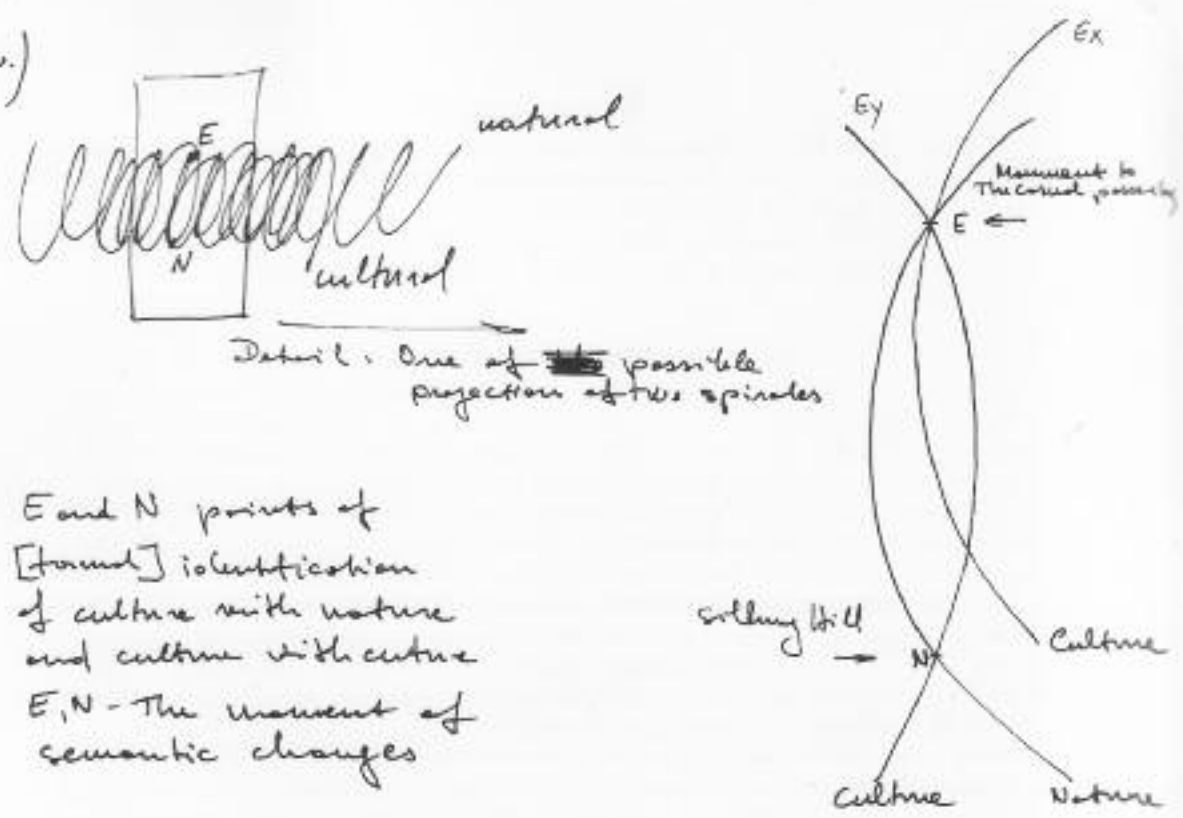 E
natural
N
cultural
Detail: One of possible
projections of two spirales
E and N points of
[formal] identification
of culture with nature
and culture with cuture
E, N - The moment of
semantic changes
Ex
Ey
Monument to
E ←
Silbury Hill
→ N
Culture
Culture
Nature